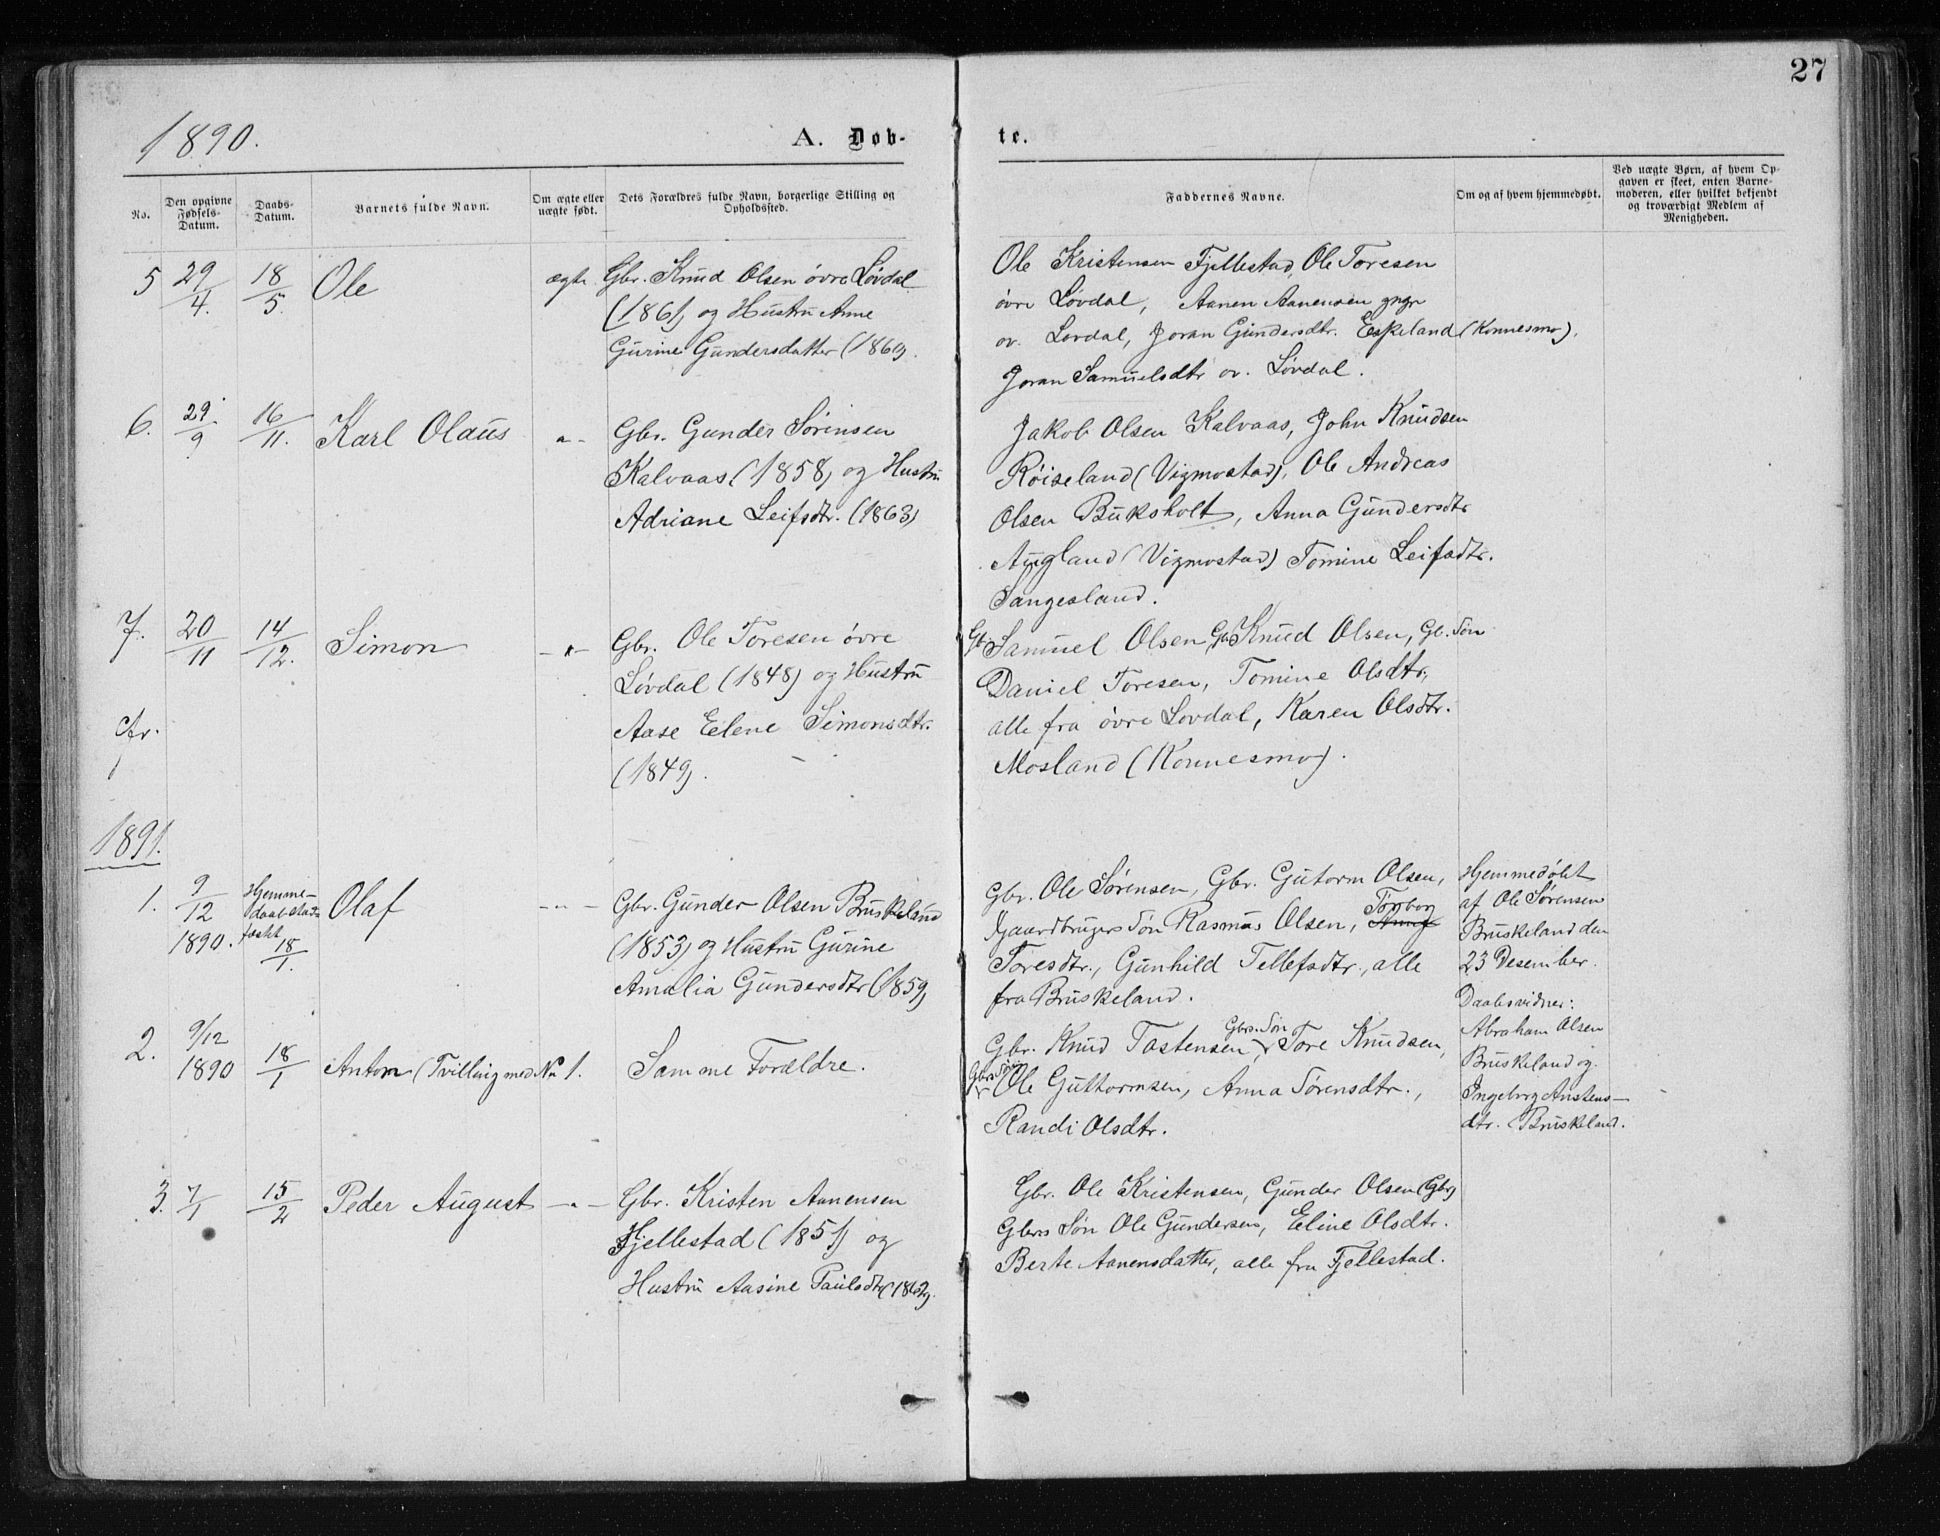 27
1890.
A. Døb-
te.
No.
Den opgivne Fødsels-Datum.
Daabs-Datum.
Barnets fulde Navn.
Om ægte eller uægte født.
Dets Forældres fulde Navn, borgerlige Stilling og Opholdssted.
Faddernes Navne.
Om og af hvem hjemmedøbt.
Ved uægte Børn, af hvem Op-
gaven er skeet, enten Barne-
moderen, eller hvilket bekjendt
og troværdigt Medlem af
Menigheden.
5 29/4. 18/5. Ole ægte
Gbr. Knud Olsen øvre Løvdal
(1861) og Hustru Anne
Gurine Gundersdatter (1860).
Ole Kristensen Fjellestad, Ole Toresen
øvre Løvdal, Aanen Aanensen yngr
øv. Løvdal, Joran Gundersdtr. Eskeland (Konnesmo).
Joran Samuelsdtr øv. Løvdal.
6. 29/9 16/11. Karl Olaus -"-
Gbr. Gunder Sørensen
Kalvaas (1858) og Hustru
Adriane Leifsdtr. (1863)
Jakob Olsen Kalvaas, John Knudsen
Røiseland (Vigmostad), Ole Andreas
Olsen Buksholt, Anna Gundersdtr
Augland (Vigmostad) Tomine Leifsdtr.
Sangesland.
7. 20/11 14/12. Simon -"-
Gbr. Ole Toresen øvre
Løvdal (1848) og Hustru
Aase Eelene Simonsdtr.
(1849).
Gbr Samuel Olsen, Gbr Knud Olsen, Gb. Søn
Daniel Toresen, Tomine Olsdtr,
alle fra øvre Løvdal, Karen Olsdtr.
Mosland (Konnesmo).
cfr.
1891.
1. 9/12 1890. Hjemme-
daab stad-
fæstt 18/1. Olaf -"-
Gbr. Gunder Olsen Bruskeland
(1853) og Hustru Gurine
Amalia Gundersdtr (1859)
Gbr. Ole Sørensen, Gbr. Gutorm Olsen,
Gaardbrugers Søn Rasmus Olsen, Torborg
Toresdtr., Gunhild Tellefsdtr., alle
fra Bruskeland.
Hjemmedøbt
af Ole Sørensen
Bruskeland den
23 Desember.
Daabsvidner:
Abraham Olsen
Bruskeland og
Ingeborg Anstens-
dtr. Bruskeland.
2. 9/12 1890 18/1 Anton (Tvilling med No 1.
Samme Forældre.
Gbr. Knud Tostensen, Gbrs. Søn Tore Knudsen,
Gbrs Søn Ole Guttormsen, Anna Sørensdtr.,
Randi Olsdtr.
3. 7/1 15/2 Peder August -"-
Gbr. Kristen Aanensen
Fjellestad (1851) og
Hustru Aasine Paulsdtr (1862).
Gbr. Ole Kristensen, Gunder Olsen (Gbr)
Gbrs Søn Ole Gundersen, Eline Olsdtr.
Berte Aanensdatter, alle fra Fjellestad.